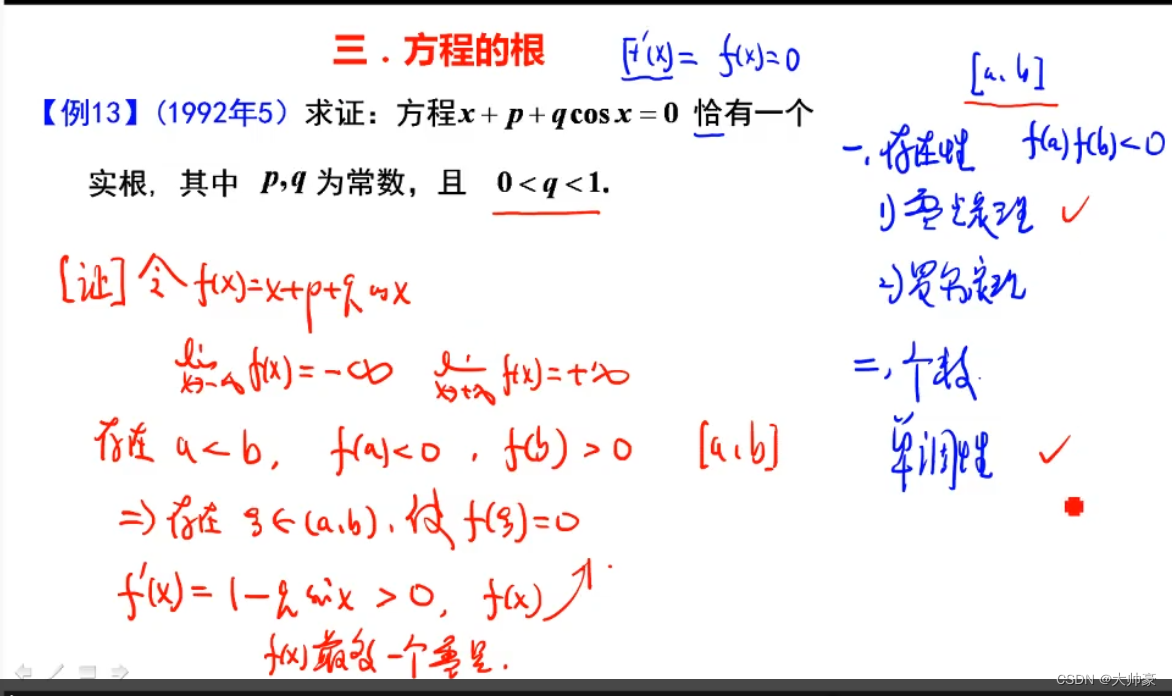 三．方程的根
F'(x)= f(x)=0
[a,b]
【例13】(1992年5）求证：方程x + p + q cos x = 0 恰有一个
实根，其中 p,q 为常数，且 0 < q < 1.
一、存在性 f(a)f(b)<0
1) 零点定理 ✓
2) 罗尔定理
二、个数.
单调性 ✓
[证] 令 f(x)=x+p+q cos x
lim x→-∞ f(x)=-∞ lim x→+∞ f(x)=+∞
存在 a<b, f(a)<0, f(b)>0 [a,b]
⇒ 存在 ξ∈(a,b), 使 f(ξ)=0
f'(x)=1-q sin x >0, f(x)↗.
f(x)最多一个零点.
CSDN @大帅豪